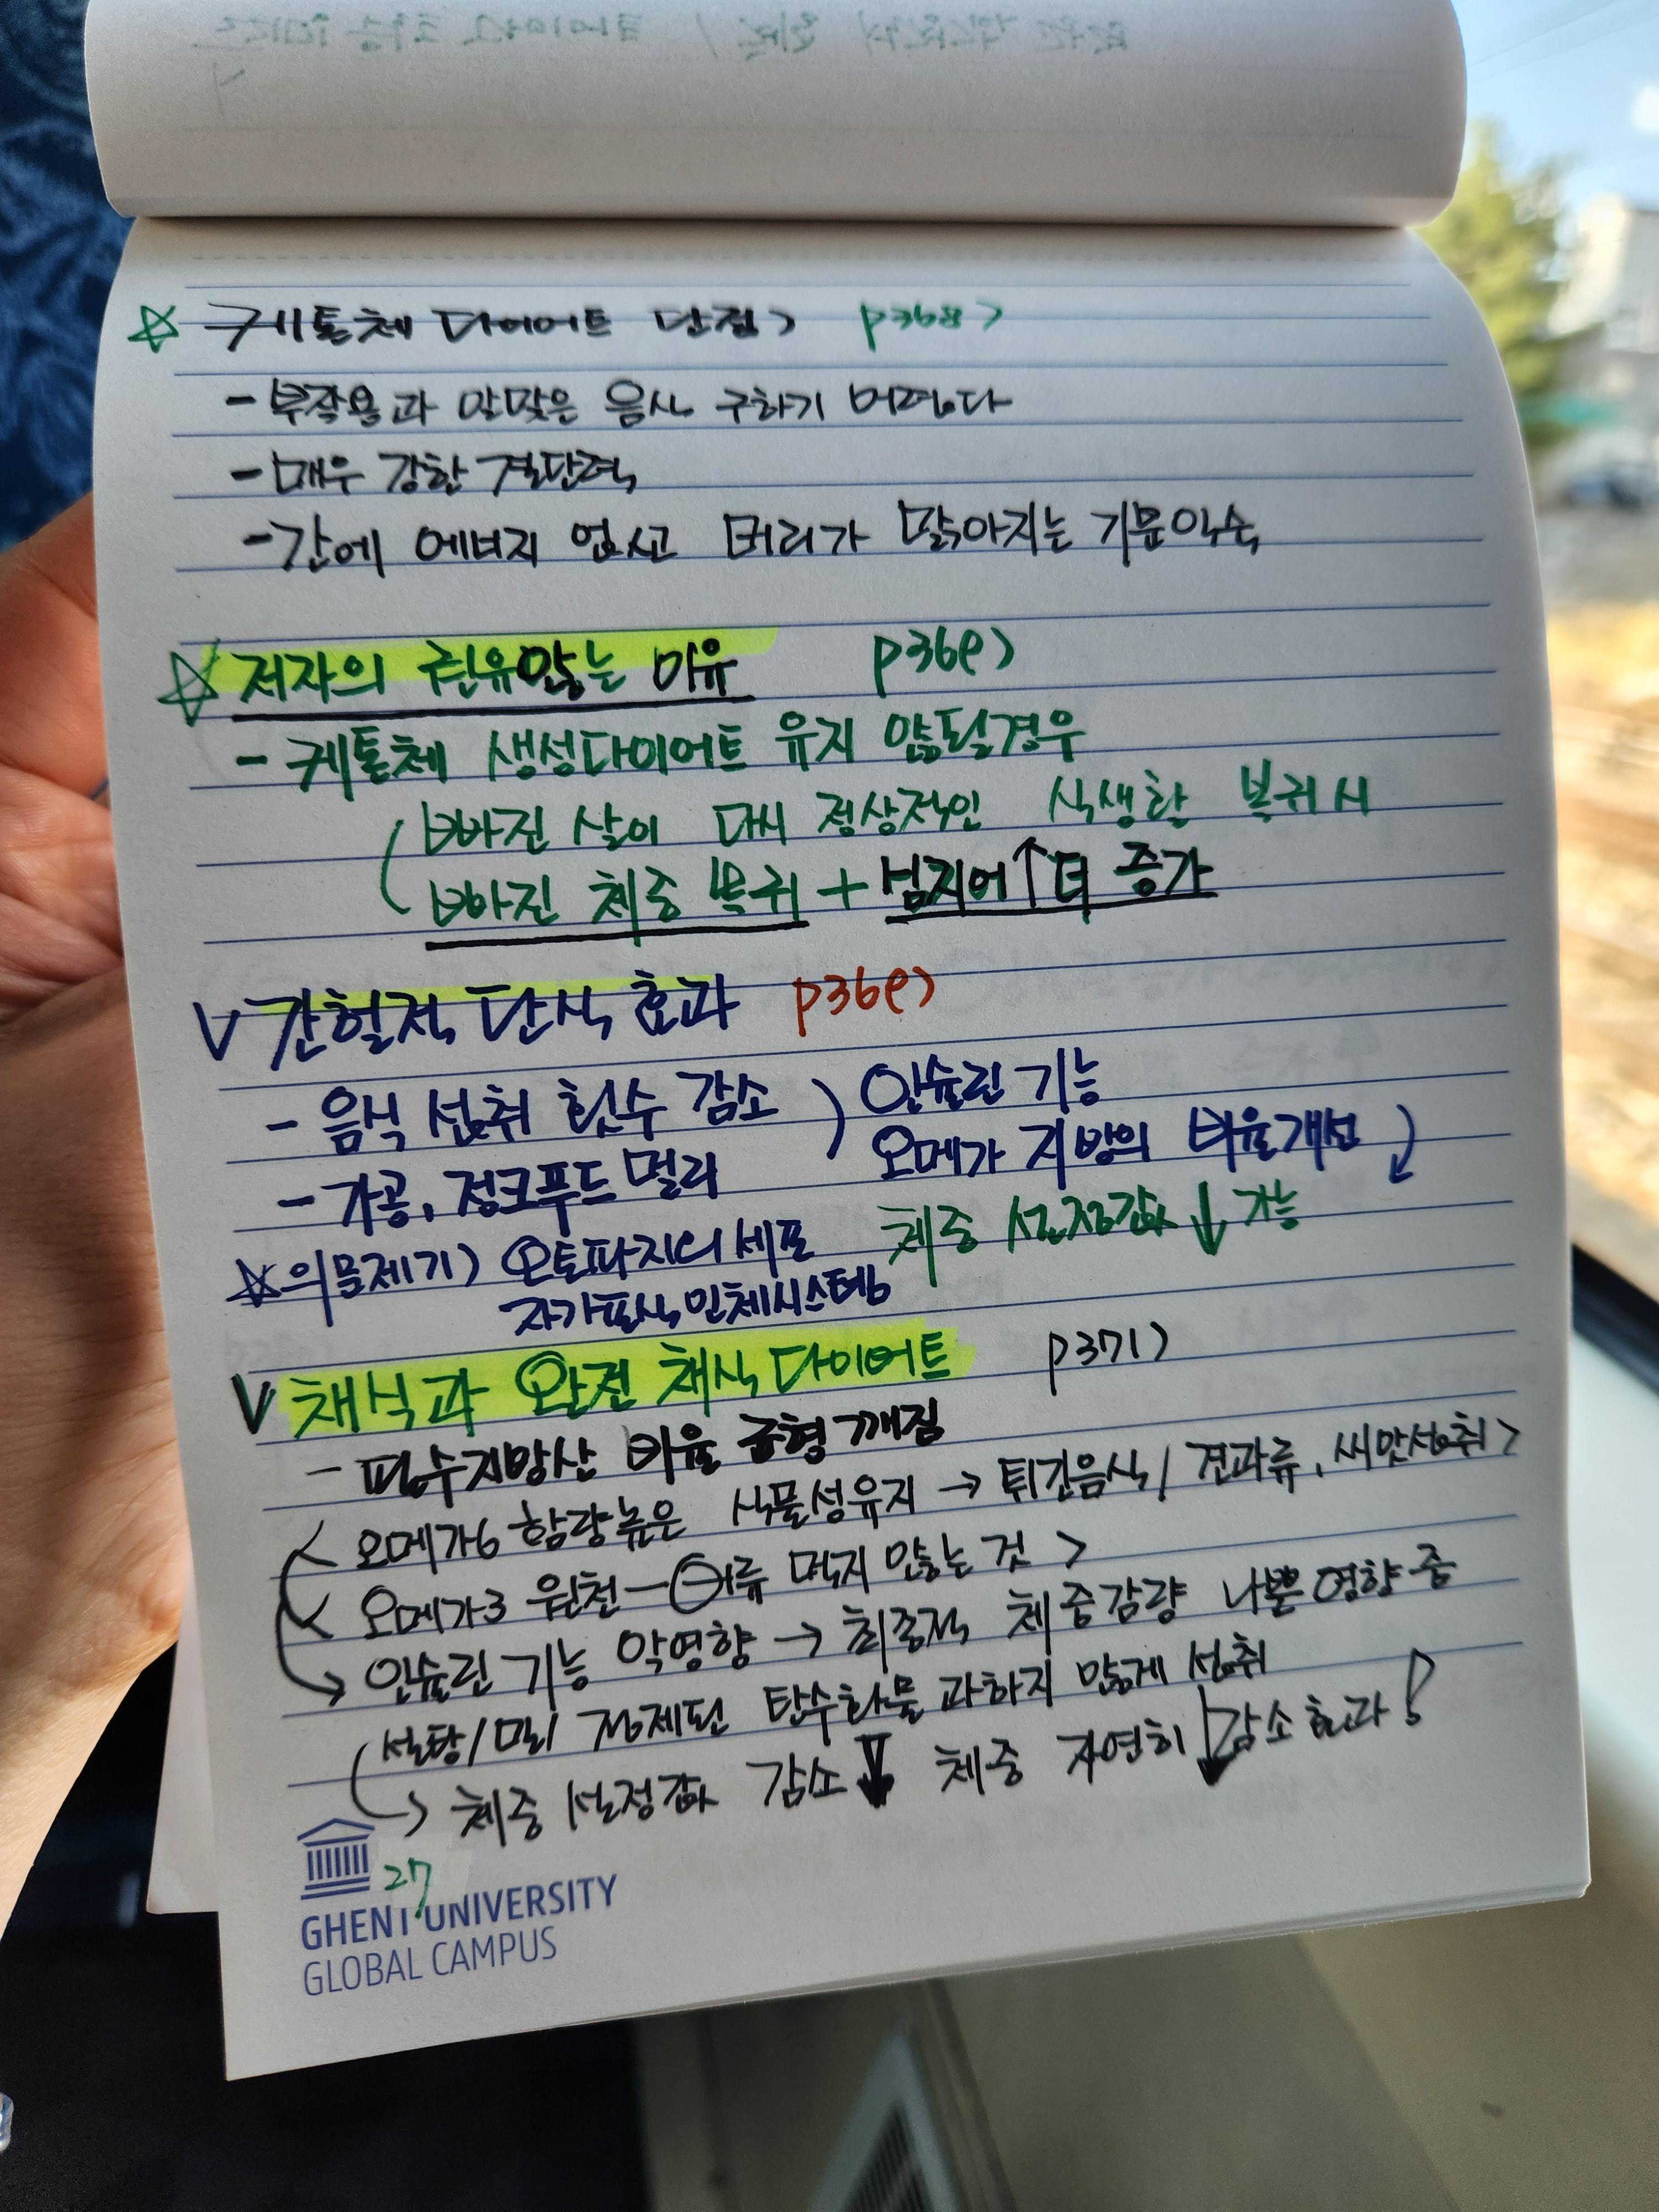 ☆ 케톨체 다이어트 단점> p368>
- 부작용과 알맞은 음식 구하기 어렵다
- 매우 강한 결단력
- 간에 에너지 없고 머리가 맑아지는 기분익숙
☆ 저자의 권유않는 이유 p369>
- 케톨체 생성다이어트 유지 않될경우
빠진 살이 다시 정상적인 식생활 복귀시
빠진 체중 복귀 + 심지어↑더 증가
V 간헐적 단식 효과 p369>
- 음식 섭취 횟수 감소 ) 인슐린 기능
- 가공, 정크푸드 멀리 오메가 지방의 비율개선
☆의문제기) 오토파지의 세포 체중 설정값↓가능
자가포식 인체시스템
V 채식과 완전 채식다이어트 p371)
- 필수지방산 비율 균형 깨짐
< 오메가6 함량높은 식물성유지 → 튀긴음식/ 견과류, 씨앗섭취>
< 오메가3 원천-어류 먹지 않는 것 >
→ 인슐린 기능 악영향 → 최종적 체중감량 나쁜영향 줌
설탕/밀/ 정제된 탄수화물 과하지 않게 섭취
→ 체중 설정값 감소↓ 체중 자연히↓감소효과!
27
GHENT UNIVERSITY
GLOBAL CAMPUS